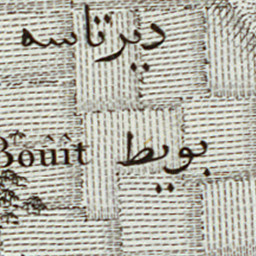 ديرتاسه
Bouït بويط